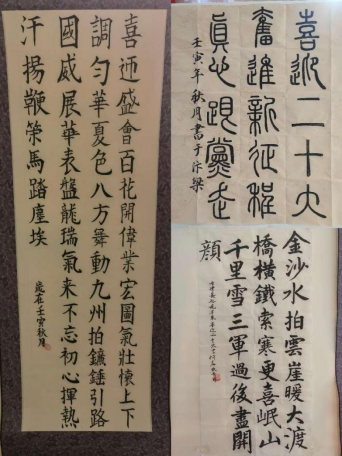 喜迎盛會百花開偉業宏圖氣壯懷上下
調勻華夏色八方舞動九州拍鐮錘引路
國威展華表盤龍瑞氣來不忘初心揮熱
汗揚鞭策馬踏塵埃
歲在壬寅秋月
喜迎二十大
奮進新征程
真心跟黨走
壬寅年秋月書于汴梁
金沙水拍雲崖暖大渡
橋橫鐵索寒更喜岷山
千里雪三軍過後盡開
顏